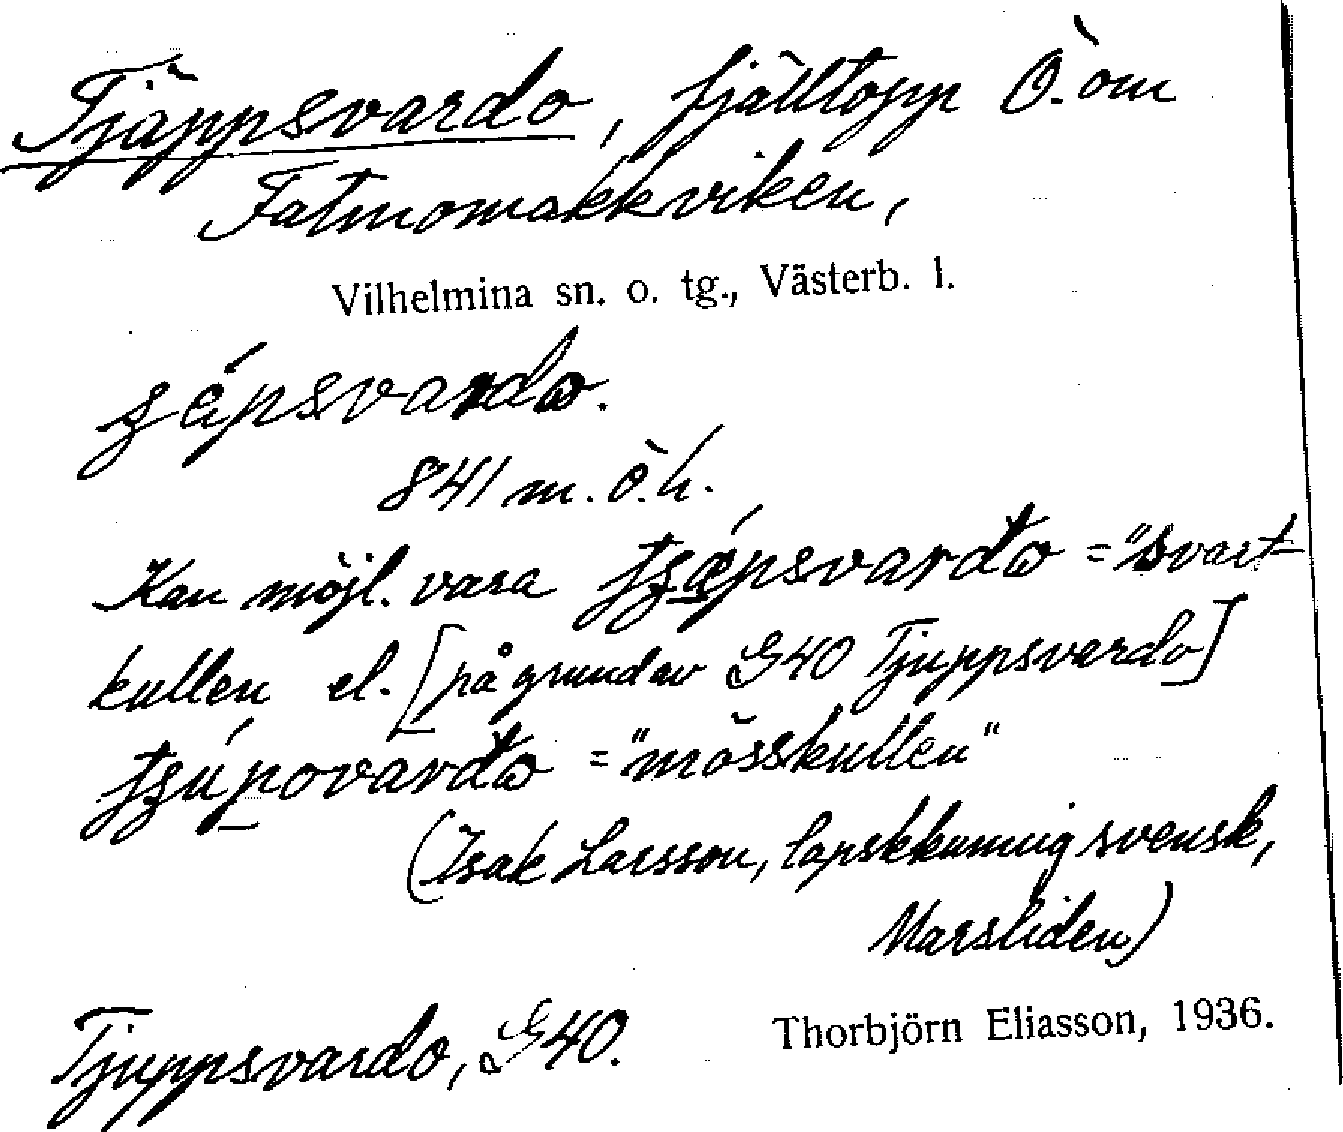 Tjäppsvardo, fjälltopp Ö. om
Fatmomakkviken,
Vilhelmina sn. o. tg., Västerb. l.
ʒépsvardo.
841 m. ö. h.
Kan möjl. vara tʒǽpsvarđo = "svart-
kullen el. [på grund av G40 Tjuppsvardo]
tʒúpovarđo = "mösskullen"
(Isak Larsson, lapskkunnig svensk,
Marsliden)
Tjuppsvardo, G40.
Thorbjörn Eliasson, 1936.